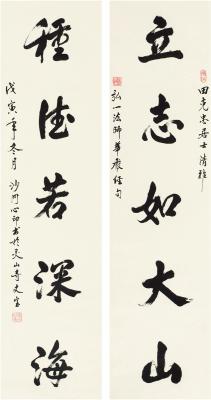 田克忠居士清雅
立志如大山
弘一法師華嚴經句
種德若深海
戊寅年冬月沙門心印書於靈山奇文室